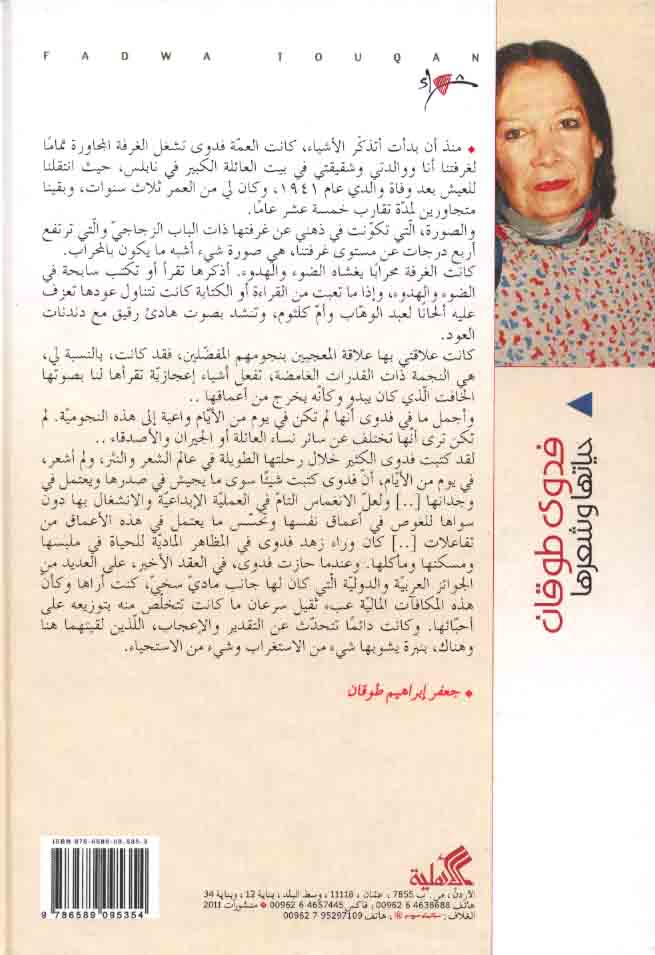 FADWA TOUQAN
شعراء
• منذ أن بدأت أتذكّر الأشياء، كانت العمّة فدوى تشغل الغرفة المجاورة تمامًا
لغرفتنا أنا ووالدتي وشقيقتي في بيت العائلة الكبير في نابلس، حيث انتقلنا
للعيش بعد وفاة والدي عام ١٩٤١، وكان لي من العمر ثلاث سنوات، وبقينا
متجاورين لمدّة تقارب خمسة عشر عامًا.
والصورة، الّتي تكوّنت في ذهني عن غرفتها ذات الباب الزجاجيّ والّتي ترتفع
أربع درجات عن مستوى غرفتنا، هي صورة شيء أشبه ما يكون بالمحراب.
كانت الغرفة محرابًا يغشاه الضوء والهدوء. أذكرها تقرأ أو تكتب سابحة في
الضوء والهدوء، وإذا ما تعبت من القراءة أو الكتابة كانت تتناول عودها تعزف
عليه ألحانًا لعبد الوهّاب وأمّ كلثوم، وتنشد بصوت هادئ رقيق مع دندنات
العود.
كانت علاقتي بها علاقة المعجبين بنجومهم المفضّلين، فقد كانت، بالنسبة لي،
هي النجمة ذات القدرات الغامضة، تفعل أشياء إعجازيّة تقرأها لنا بصوتها
الخافت الّذي كان يبدو وكأنّه يخرج من أعماقها ..
وأجمل ما في فدوى أنّها لم تكن في يوم من الأيّام واعية إلى هذه النجوميّة. لم
تكن ترى أنّها تختلف عن سائر نساء العائلة أو الجيران والأصدقاء ..
لقد كتبت فدوى الكثير خلال رحلتها الطويلة في عالم الشعر والنثر، ولم أشعر،
في يوم من الأيّام، أنّ فدوى كتبت شيئًا سوى ما يجيش في صدرها ويعتمل في
وجدانها [..] ولعلّ الانغماس التامّ في العمليّة الإبداعيّة والانشغال بها دون
سواها للغوص في أعماق نفسها وتحسّس ما يعتمل في هذه الأعماق من
تفاعلات [..] كان وراء زهد فدوى في المظاهر المادّيّة للحياة في ملبسها
ومسكنها ومأكلها. وعندما حازت فدوى، في العقد الأخير، على العديد من
الجوائز العربيّة والدوليّة الّتي كان لها جانب مادّيّ سخيّ، كنت أراها وكأنّ
هذه المكافآت الماليّة عبء ثقيل سرعان ما كانت تتخلّص منه بتوزيعه على
أحبّائها. وكانت دائمًا تتحدّث عن التقدير والإعجاب، اللّذين لقيتهما هنا
وهناك، بنبرة يشوبها شيء من الاستغراب وشيء من الاستحياء.
• جعفر إبراهيم طوقان
فدوى طوقان
حياتها وشعرها
9 786589 095354
الأهلية
الأردن، ص. ب 7855، عمّان، 11118، وسط البلد، بناية 12، وبناية 34
هاتف 4638688 6 00962، فاكس 4657445 6 00962 • منشورات 2011
الغلاف: ، هاتف 95297109 7 00962